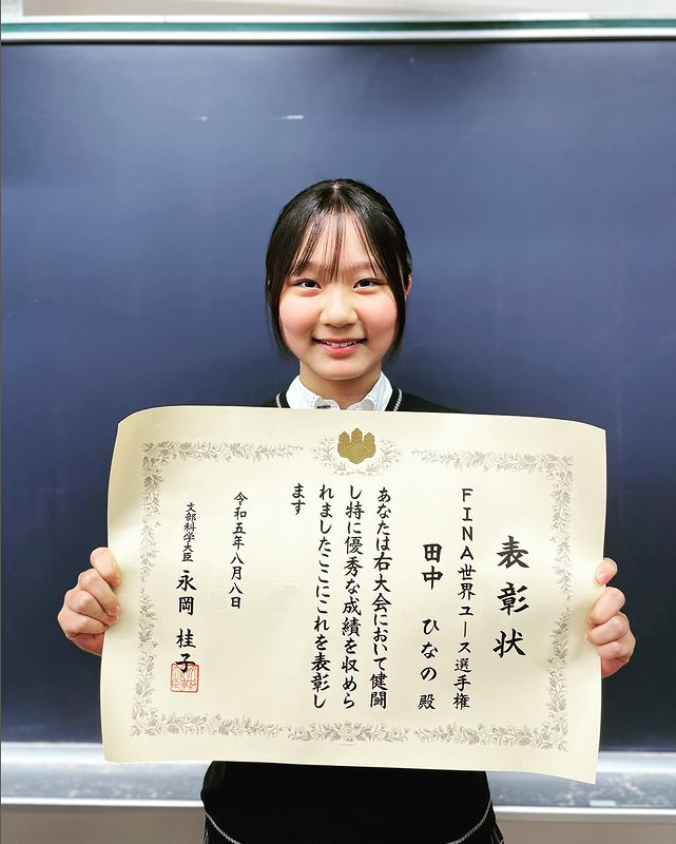 表彰状
FINA世界ユース選手権
田中 ひなの 殿
あなたは右大会において健闘
し特に優秀な成績を収めら
れましたここにこれを表彰し
ます
令和五年八月八日
文部科学大臣 永岡 桂子